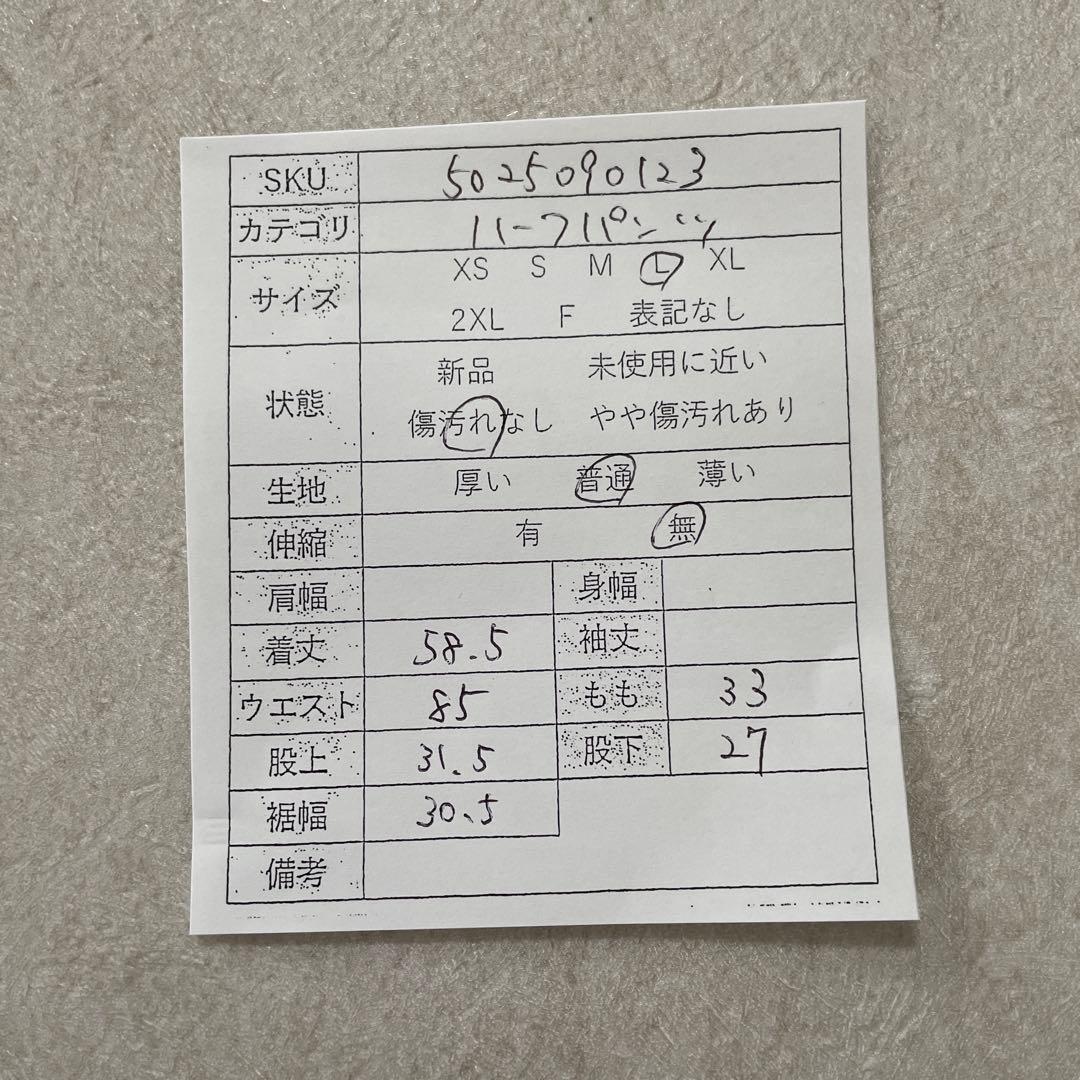 SKU 5025090123
カテゴリ ハーフパンツ
サイズ XS S M L XL
2XL F 表記なし
状態 新品 未使用に近い
傷汚れなし やや傷汚れあり
生地 厚い 普通 薄い
伸縮 有 無
肩幅 身幅
着丈 58.5 袖丈
ウエスト 85 もも 33
股上 31.5 股下 27
裾幅 30.5
備考